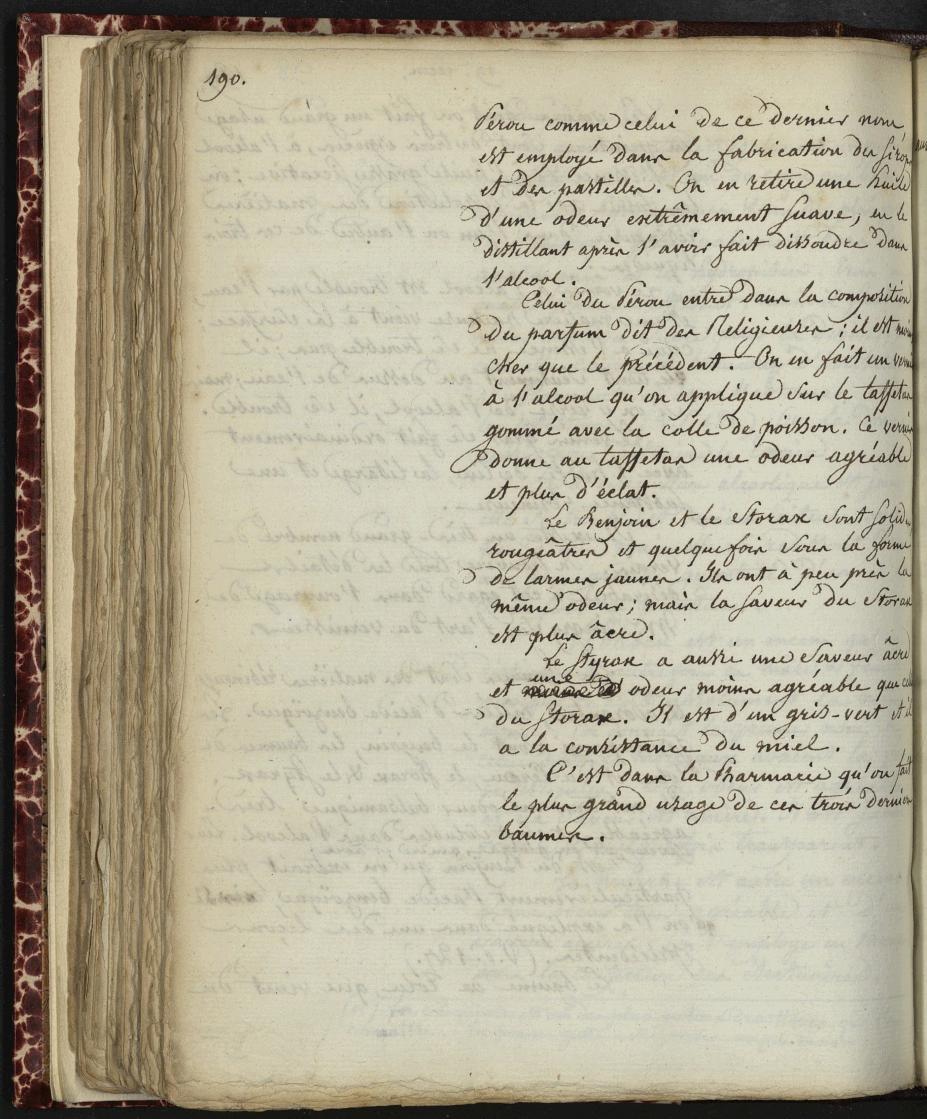 190.
Pérou comme celui de ce dernier nom
est employé dans la fabrication du Sirop
et des pastilles. On en retire une huile
d'une odeur extrêmement suave, en le
distillant après l'avoir fait dissoudre dans
l'alcool.
Celui du Pérou entre dans la composition
du parfum dit des Religieuses ; il est moins
cher que le précédent. On en fait un vernis
à l'alcool qu'on applique sur le taffetas
gommé avec la colle de poisson. Ce vernis
donne au taffetas une odeur agréable
et plus d'éclat.
Le Benjoin et le Storax sont solides
rougeâtres et quelquefois sous la forme
de larmes jaunes. Ils ont à peu près la
même odeur ; mais la saveur du Storax
est plus âcre.
Le Styrax a aussi une saveur âcre
une
et odeur moins agréable que celle
du Storax. Il est d'un gris-vert et il
a la consistance du miel.
C'est dans la Pharmacie qu'on fait
le plus grand usage de ces trois derniers
baumes.